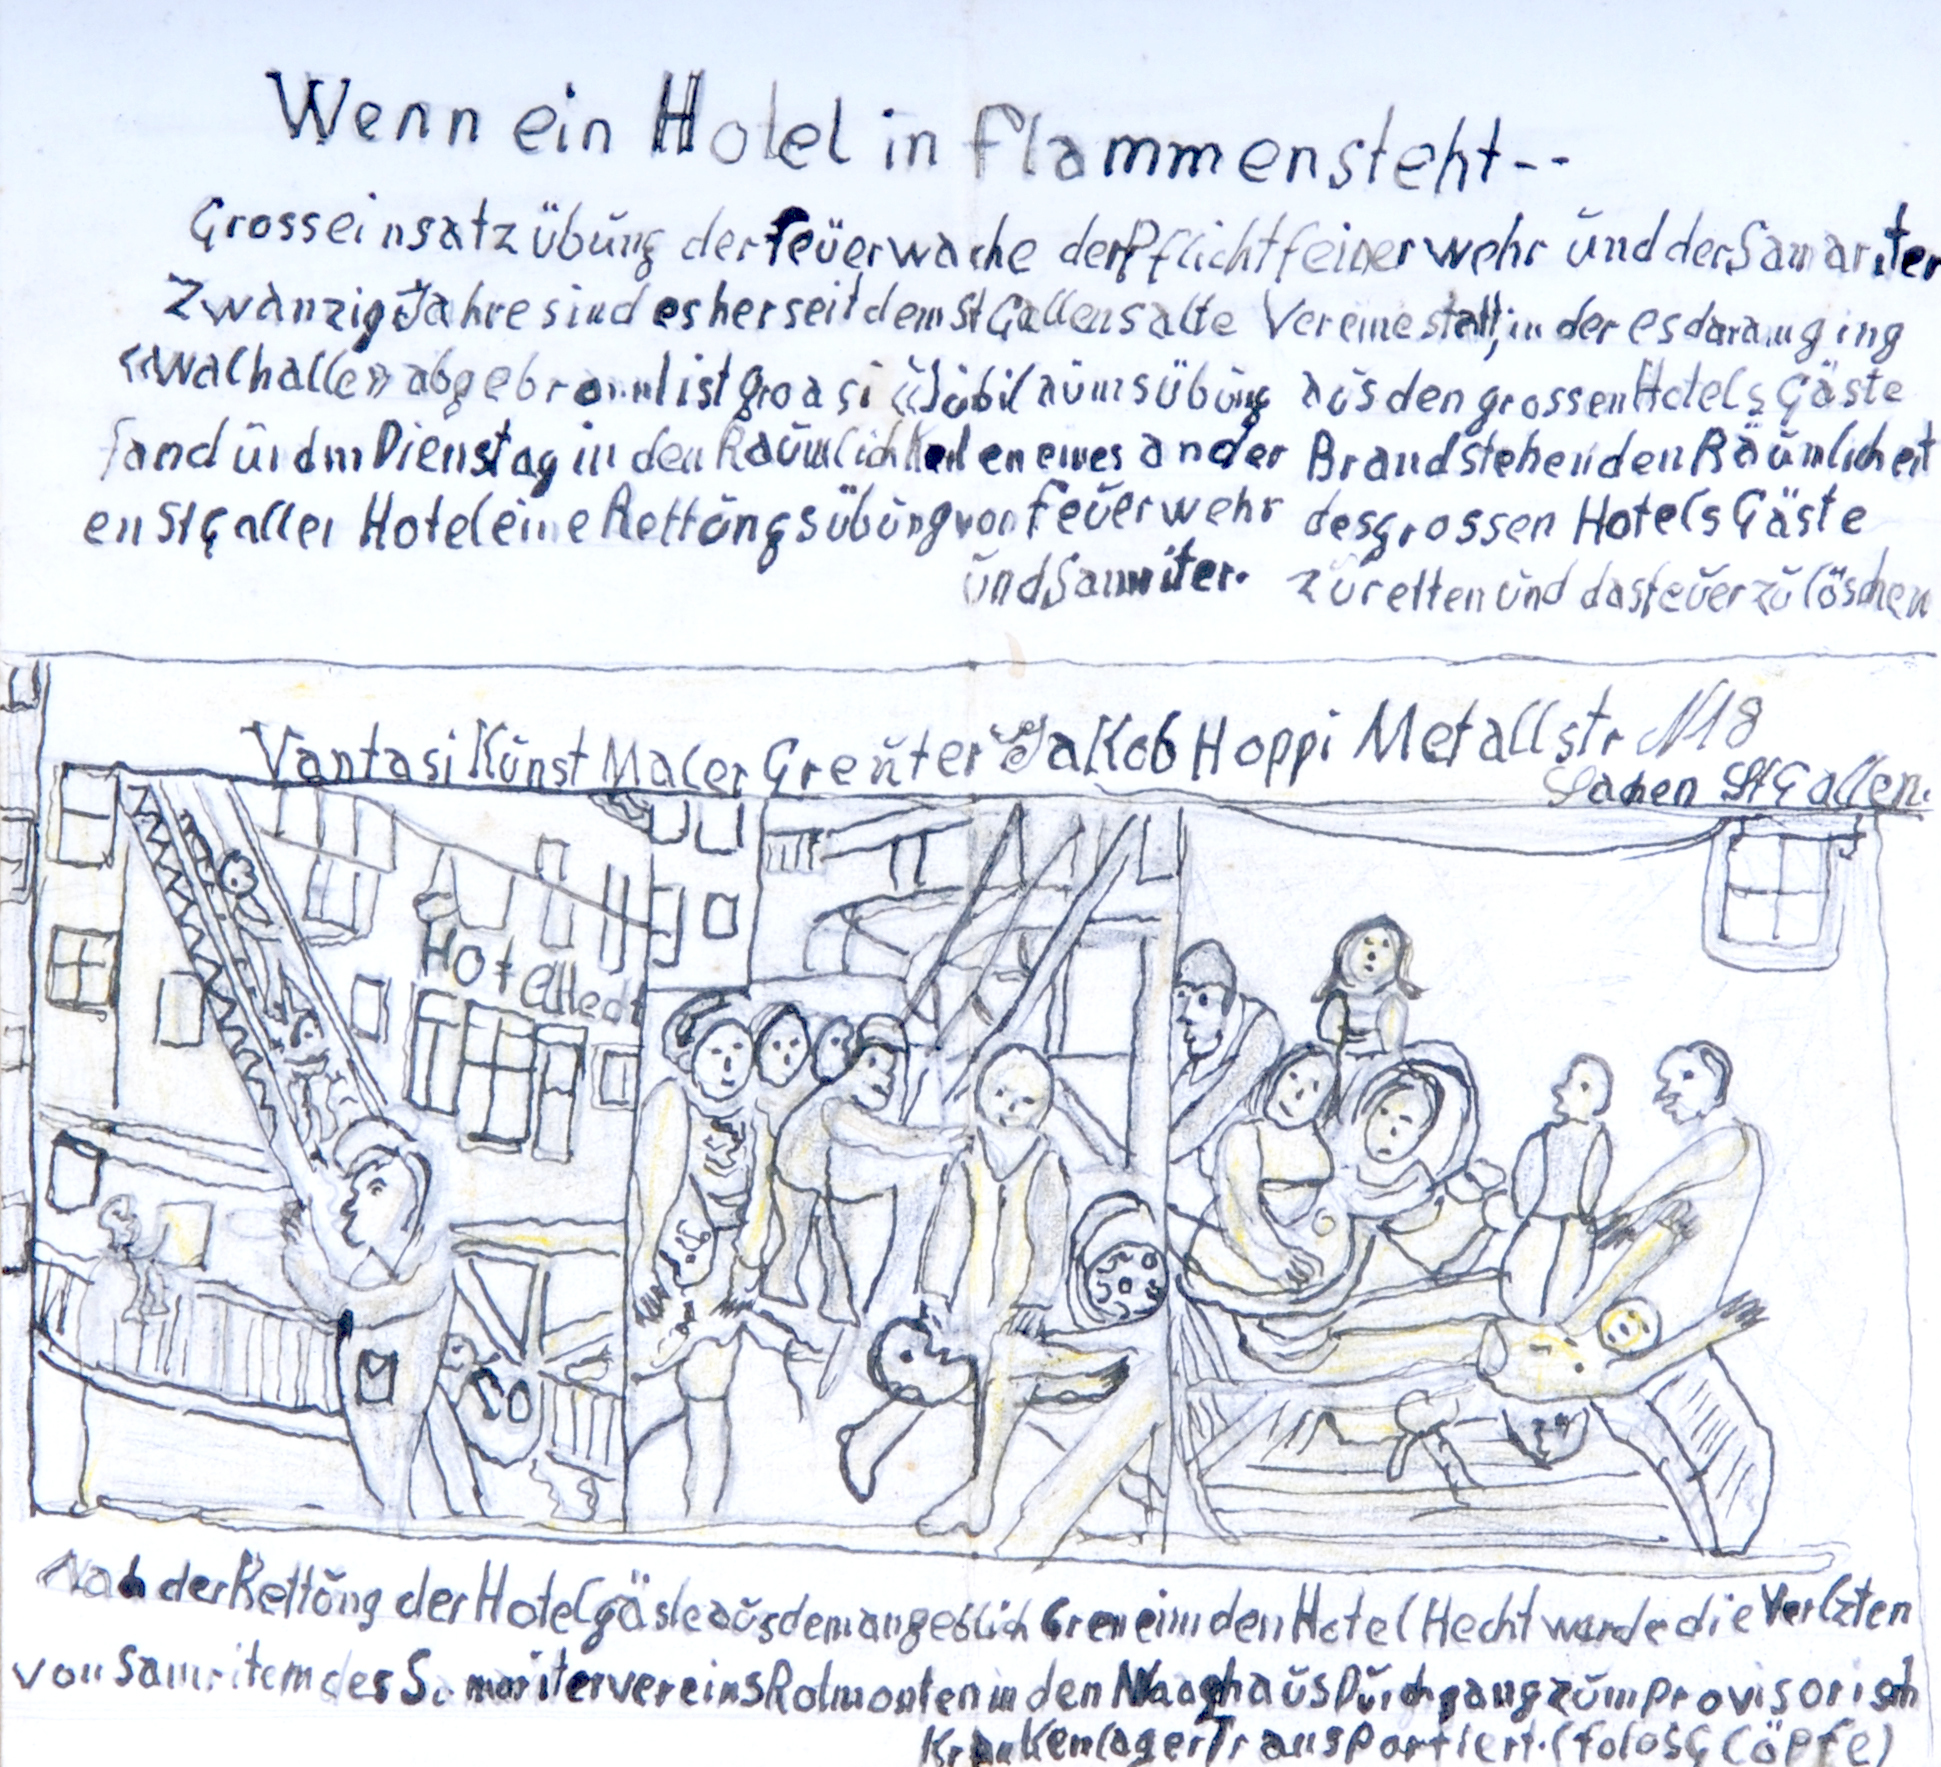 Wenn ein Hotel in flammensteht--
Grosseinsatzübŭng der feŭerwache der Pflichtfeiuerwehr ŭnd der Samariter
Zwanzig Jahre sind es her seit dem St Gallens alte Vereine statt, in der es darum ging
«Walhalle» abgebrannt ist Jŭbilaŭmsübŭng aŭs den grossen Hotels Gäste
fand am Dienstag in den Raŭmlichkeiten eines ander Brand stehenden Räŭmlicheit
en St Galler Hotel eine Rettŭngsübŭng von feŭerwehr des grossen Hotels Gäste
ŭnd Samriter. zŭ retten ŭnd das feŭer zŭ löschen
Vantasi Kŭnst Maler Greŭter Jakob Hoppi Metallstr N 18
Lachen St Gallen.
Hotel Hecht
Nach der Rettŭng der Hotelgäste aŭs dem angeblich Hotel Hecht wurde die Verlzten
von Samritern des Samaritervereins Rotmonten in den Waaghaŭs Dŭrchgang zŭm provisorisch
Krankenlager Transportiert. (fotos G Cöpfe)